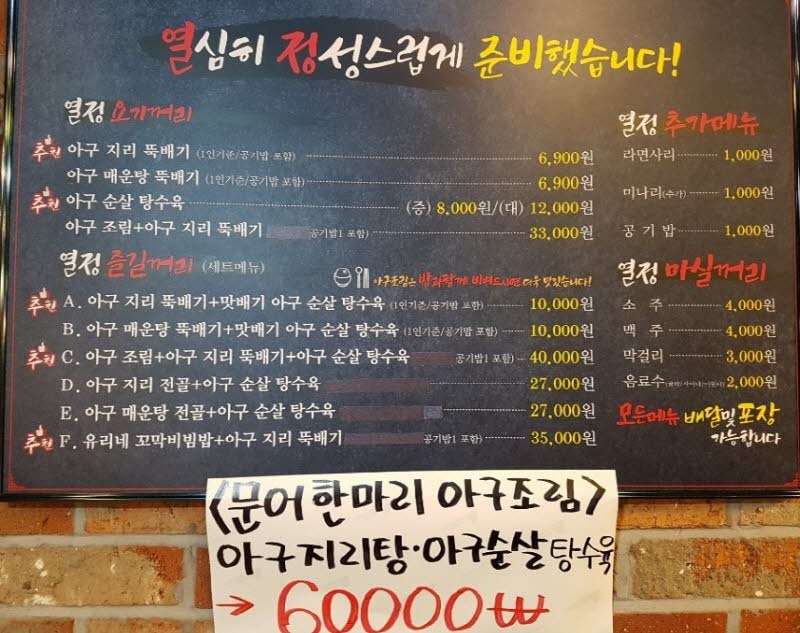 열심히 정성스럽게 준비했습니다!
열정 요기꺼리
추천 아구 지리 뚝배기 (1인기준/공기밥 포함) 6,900원
아구 매운탕 뚝배기 (1인기준/공기밥 포함) 6,900원
추천 아구 순살 탕수육 (중) 8,000원/(대) 12,000원
아구 조림+아구 지리 뚝배기 공기밥1 포함) 33,000원
열정 즐길꺼리 (세트메뉴)
아구조림은 밥과함께 비벼드시면 더욱 맛있습니다!
추천 A. 아구 지리 뚝배기+맛배기 아구 순살 탕수육 (1인기준/공기밥 포함) 10,000원
B. 아구 매운탕 뚝배기+맛배기 아구 순살 탕수육 (1인기준/공기밥 포함) 10,000원
추천 C. 아구 조림+아구 지리 뚝배기+아구 순살 탕수육 공기밥1 포함) 40,000원
D. 아구 지리 전골+아구 순살 탕수육 27,000원
E. 아구 매운탕 전골+아구 순살 탕수육 27,000원
추천 F. 유리네 꼬막비빔밥+아구 지리 뚝배기 공기밥1 포함) 35,000원
열정 추가메뉴
라면사리 1,000원
미나리(추가) 1,000원
공기밥 1,000원
열정 마실꺼리
소주 4,000원
맥주 4,000원
막걸리 3,000원
음료수 2,000원
모든메뉴 배달및포장
가능합니다
<문어한마리 아구조림>
아구지리탕·아구순살탕수육
→ 60000₩